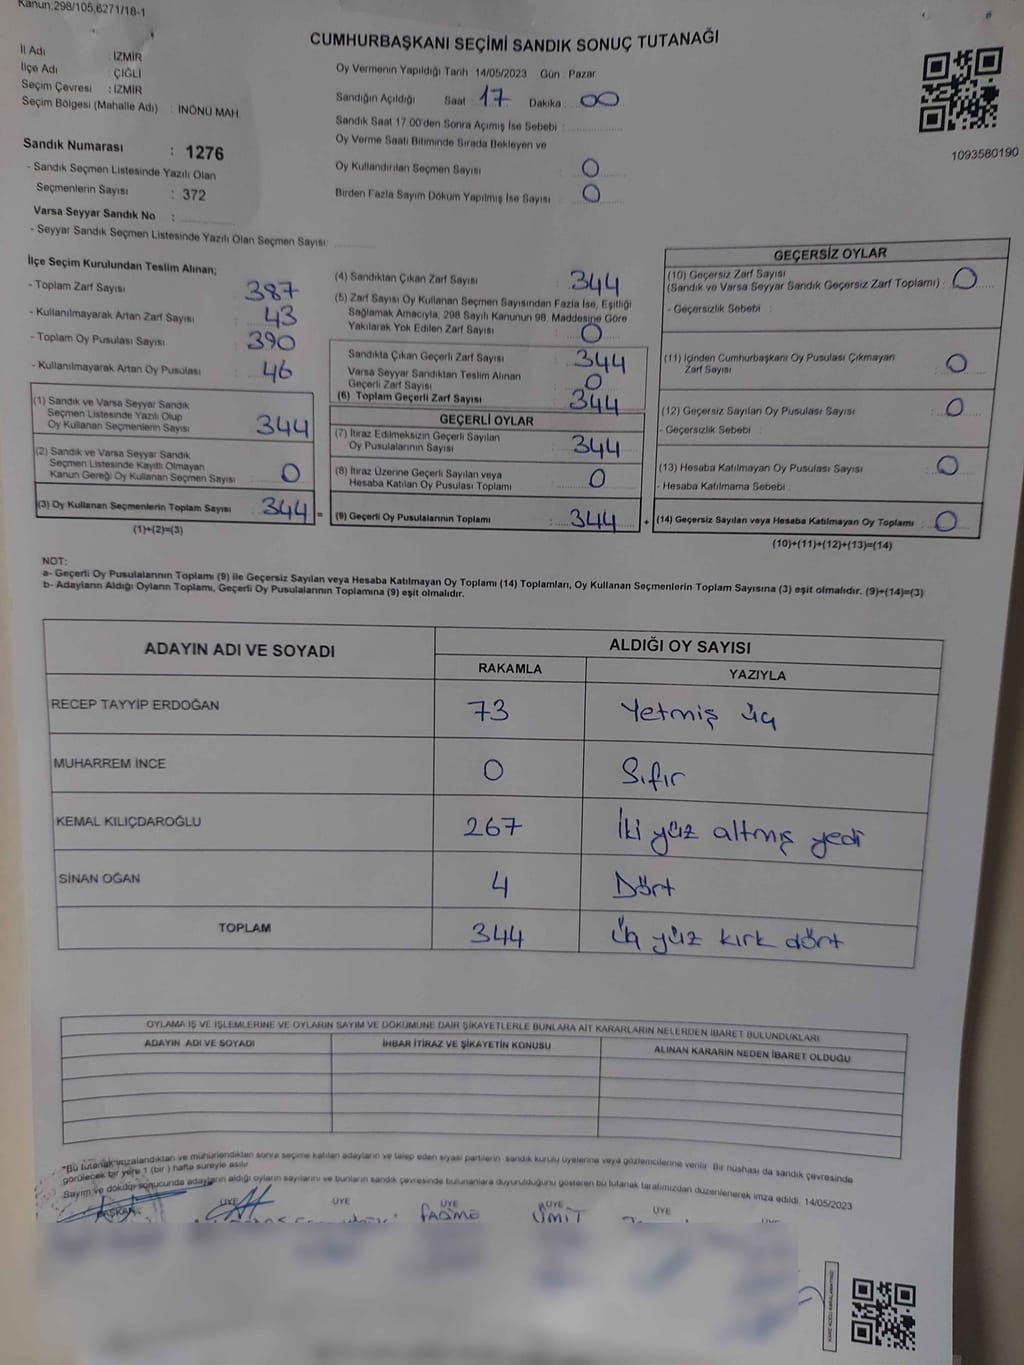 Kanun,298/105,6271/18-1
CUMHURBAŞKANI SEÇİMİ SANDIK SONUÇ TUTANAĞI
İl Adı : İZMİR
İlçe Adı : ÇİĞLİ
Seçim Çevresi : İZMİR
Seçim Bölgesi (Mahalle Adı) : İNÖNÜ MAH.
Oy Vermenin Yapıldığı Tarih 14/05/2023 Gün : Pazar
Sandığın Açıldığı Saat : 17 Dakika : 00
Sandık Saat 17.00'den Sonra Açılmış İse Sebebi :
Oy Verme Saati Bitiminde Sırada Bekleyen ve
Oy Kullandırılan Seçmen Sayısı : 0
Birden Fazla Sayım Döküm Yapılmış İse Sayısı : 0
1093580190
Sandık Numarası : 1276
- Sandık Seçmen Listesinde Yazılı Olan
Seçmenlerin Sayısı : 372
Varsa Seyyar Sandık No :
- Seyyar Sandık Seçmen Listesinde Yazılı Olan Seçmen Sayısı:
İlçe Seçim Kurulundan Teslim Alınan;
- Toplam Zarf Sayısı : 387
- Kullanılmayarak Artan Zarf Sayısı : 43
- Toplam Oy Pusulası Sayısı : 390
- Kullanılmayarak Artan Oy Pusulası : 46
(1) Sandık ve Varsa Seyyar Sandık
Seçmen Listesinde Yazılı Olup
Oy Kullanan Seçmenlerin Sayısı : 344
(2) Sandık ve Varsa Seyyar Sandık
Seçmen Listesinde Kayıtlı Olmayan
Kanun Gereği Oy Kullanan Seçmen Sayısı : 0
(3) Oy Kullanan Seçmenlerin Toplam Sayısı : 344 =
(1)+(2)=(3)
(4) Sandıktan Çıkan Zarf Sayısı : 344
(5) Zarf Sayısı Oy Kullanan Seçmen Sayısından Fazla İse, Eşitliği
Sağlamak Amacıyla, 298 Sayılı Kanunun 98. Maddesine Göre
Yakılarak Yok Edilen Zarf Sayısı : 0
Sandıkta Çıkan Geçerli Zarf Sayısı : 344
Varsa Seyyar Sandıktan Teslim Alınan
Geçerli Zarf Sayısı : 0
(6) Toplam Geçerli Zarf Sayısı : 344
GEÇERLİ OYLAR
(7) İtiraz Edilmeksizin Geçerli Sayılan
Oy Pusulalarının Sayısı : 344
(8) İtiraz Üzerine Geçerli Sayılan veya
Hesaba Katılan Oy Pusulası Toplamı : 0
(9) Geçerli Oy Pusulalarının Toplamı : 344 +
GEÇERSİZ OYLAR
(10) Geçersiz Zarf Sayısı
(Sandık ve Varsa Seyyar Sandık Geçersiz Zarf Toplamı) : 0
- Geçersizlik Sebebi :
(11) İçinden Cumhurbaşkanı Oy Pusulası Çıkmayan
Zarf Sayısı : 0
(12) Geçersiz Sayılan Oy Pusulası Sayısı : 0
- Geçersizlik Sebebi :
(13) Hesaba Katılmayan Oy Pusulası Sayısı : 0
- Hesaba Katılmama Sebebi :
(14) Geçersiz Sayılan veya Hesaba Katılmayan Oy Toplamı : 0
(10)+(11)+(12)+(13)=(14)
NOT:
a- Geçerli Oy Pusulalarının Toplamı (9) ile Geçersiz Sayılan veya Hesaba Katılmayan Oy Toplamı (14) Toplamları, Oy Kullanan Seçmenlerin Toplam Sayısına (3) eşit olmalıdır. (9)+(14)=(3)
b- Adayların Aldığı Oyların Toplamı, Geçerli Oy Pusulalarının Toplamına (9) eşit olmalıdır.
ADAYIN ADI VE SOYADI ALDIĞI OY SAYISI
RAKAMLA YAZIYLA
RECEP TAYYİP ERDOĞAN 73 Yetmiş üç
MUHARREM İNCE 0 Sıfır
KEMAL KILIÇDAROĞLU 267 İki yüz altmış yedi
SİNAN OĞAN 4 Dört
TOPLAM 344 üç yüz kırk dört
OYLAMA İŞ VE İŞLEMLERİNE VE OYLARIN SAYIM VE DÖKÜMÜNE DAİR ŞİKAYETLERLE BUNLARA AİT KARARLARIN NELERDEN İBARET BULUNDUKLARI
ADAYIN ADI VE SOYADI İHBAR İTİRAZ VE ŞİKAYETİN KONUSU ALINAN KARARIN NEDEN İBARET OLDUĞU
*Bu tutanak imzalandıktan ve mühürlendikten sonra seçime katılan adayların ve talep eden siyasi partilerin sandık kurulu üyelerine veya gözlemcilerine verilir. Bir nüshası da sandık çevresinde
görülecek bir yere 1 (bir) hafta süreyle asılır.
Sayım ve döküm sonucunda adayların aldığı oyların sayılarını ve bunların sandık çevresinde bulunanlara duyurulduğunu gösteren bu tutanak tarafımızdan düzenlenerek imza edildi. 14/05/2023
BAŞKAN ÜYE ÜYE ÜYE ÜYE ÜYE
FADİME ÜMİT